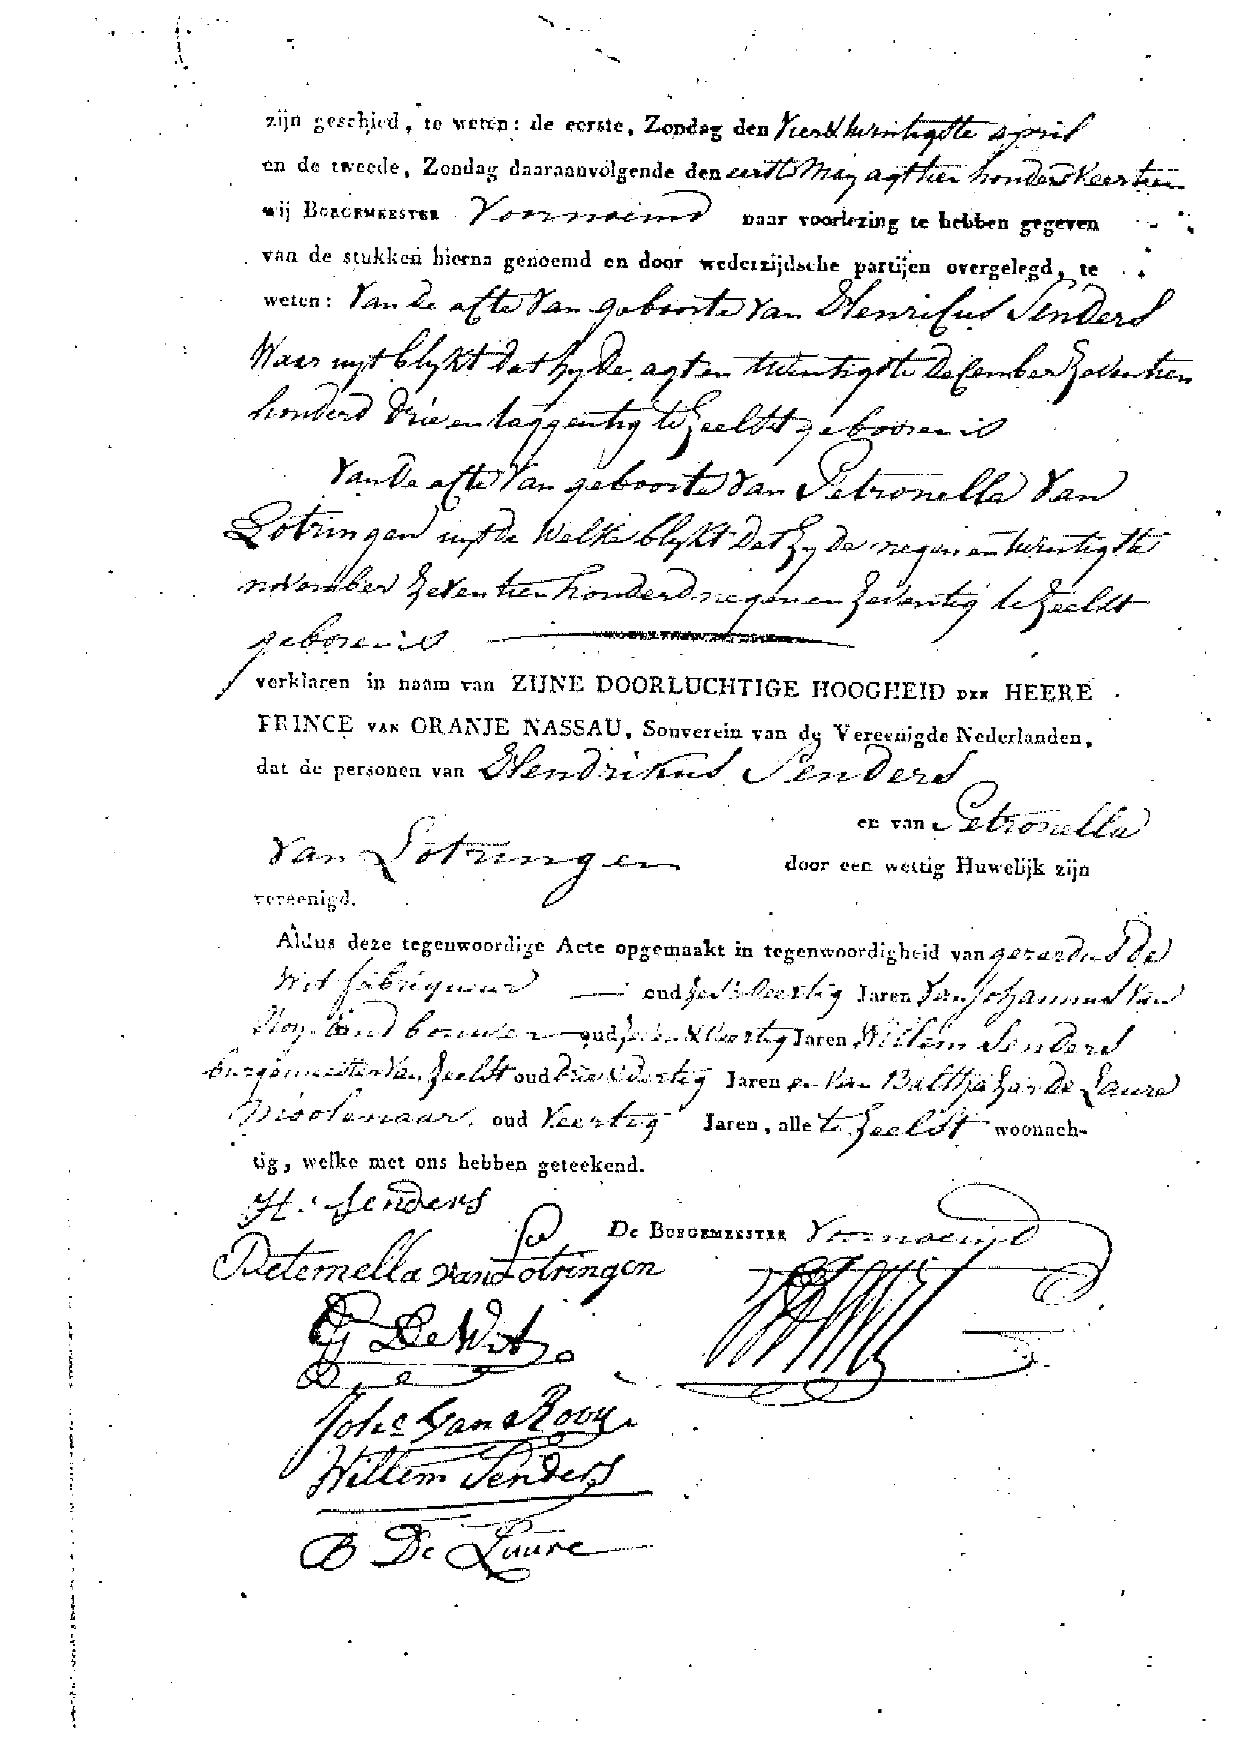 zijn geschied, te weten: de eerste, Zondag den vier & twintigste april
en de tweede, Zondag daaraanvolgende den eerste May agthien honderd veerthien
wij BORGEMEESTER Voornoemd naar voorlezing te hebben gegeven
van de stukken hierna genoemd en door wederzijdsche partijen overgelegd, te
weten: Van de afte van geboorte van Henrikus Senders
Waar uijt blykt dat hy de agt en twintigste December Zeventhien
honderd drie en taggentig te Zeeldt gebooren is
Van de afte van geboorte van Petronella Van
Lotringen uijt de welke blykt dat Zy de negen en twintigste
november Zeventien honderd negen en Zeventig te Zeeldt
geboren is
verklaren in naam van ZIJNE DOORLUCHTIGE HOOGHEID DER HEERE
PRINCE VAN ORANJE NASSAU, Souverein van de Vereenigde Nederlanden,
dat de personen van Hendrikus Senders
en van Petronella
Van Lotringen door een wettig Huwelijk zijn
vereenigd.
Aldus deze tegenwoordige Acte opgemaakt in tegenwoordigheid van gerardus De
Wit fabriqueur oud veertig Jaren Van Johannes Van
Rooy bouwer oud veertig Jaren Willem Senders
burgemeester Van Zeeldt oud drie & dertig Jaren en Van Balthazar De Laure
Moolenaar oud Veertig Jaren, alle te Zeeldt woonach-
tig, welke met ons hebben geteekend.
H. Senders
De BORGEMEESTER Voornoemd
Peternella van Lotringen
G De Wit
Johs Van Rooy
Willem Senders
B De Luure